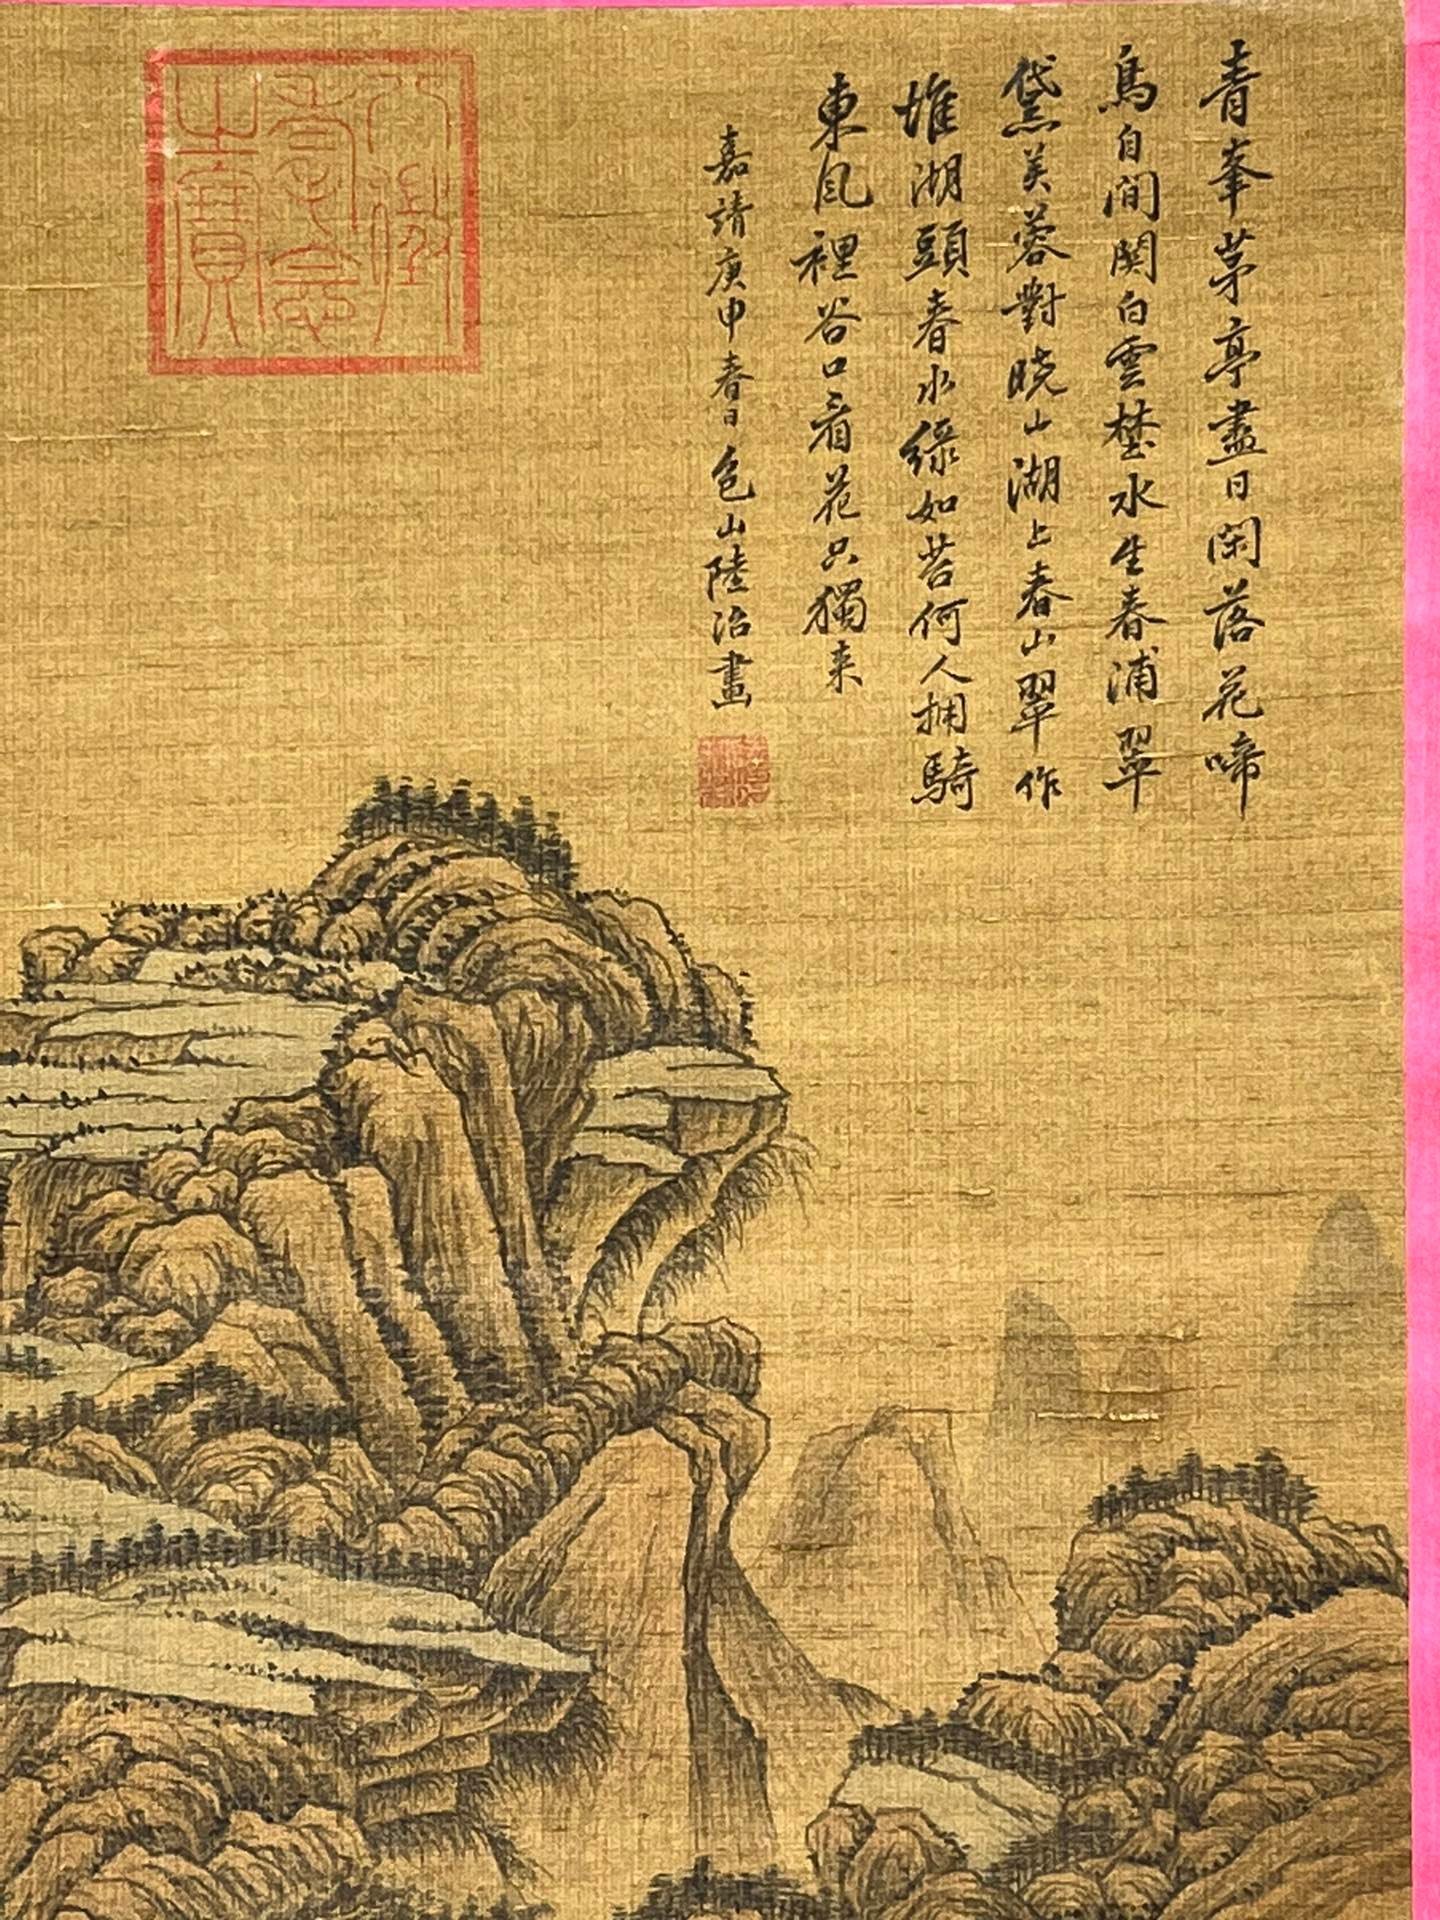 青峯茅亭盡日閑落花啼
鳥自間関白雲埜水生春浦翠
黛芙蓉對晓山湖上春山翠作
堆湖頭春水緑如苔何人拥騎
東風裡谷口看花只獨来
嘉靖庚申春日包山陸治畫
八徵
耄念
之寶